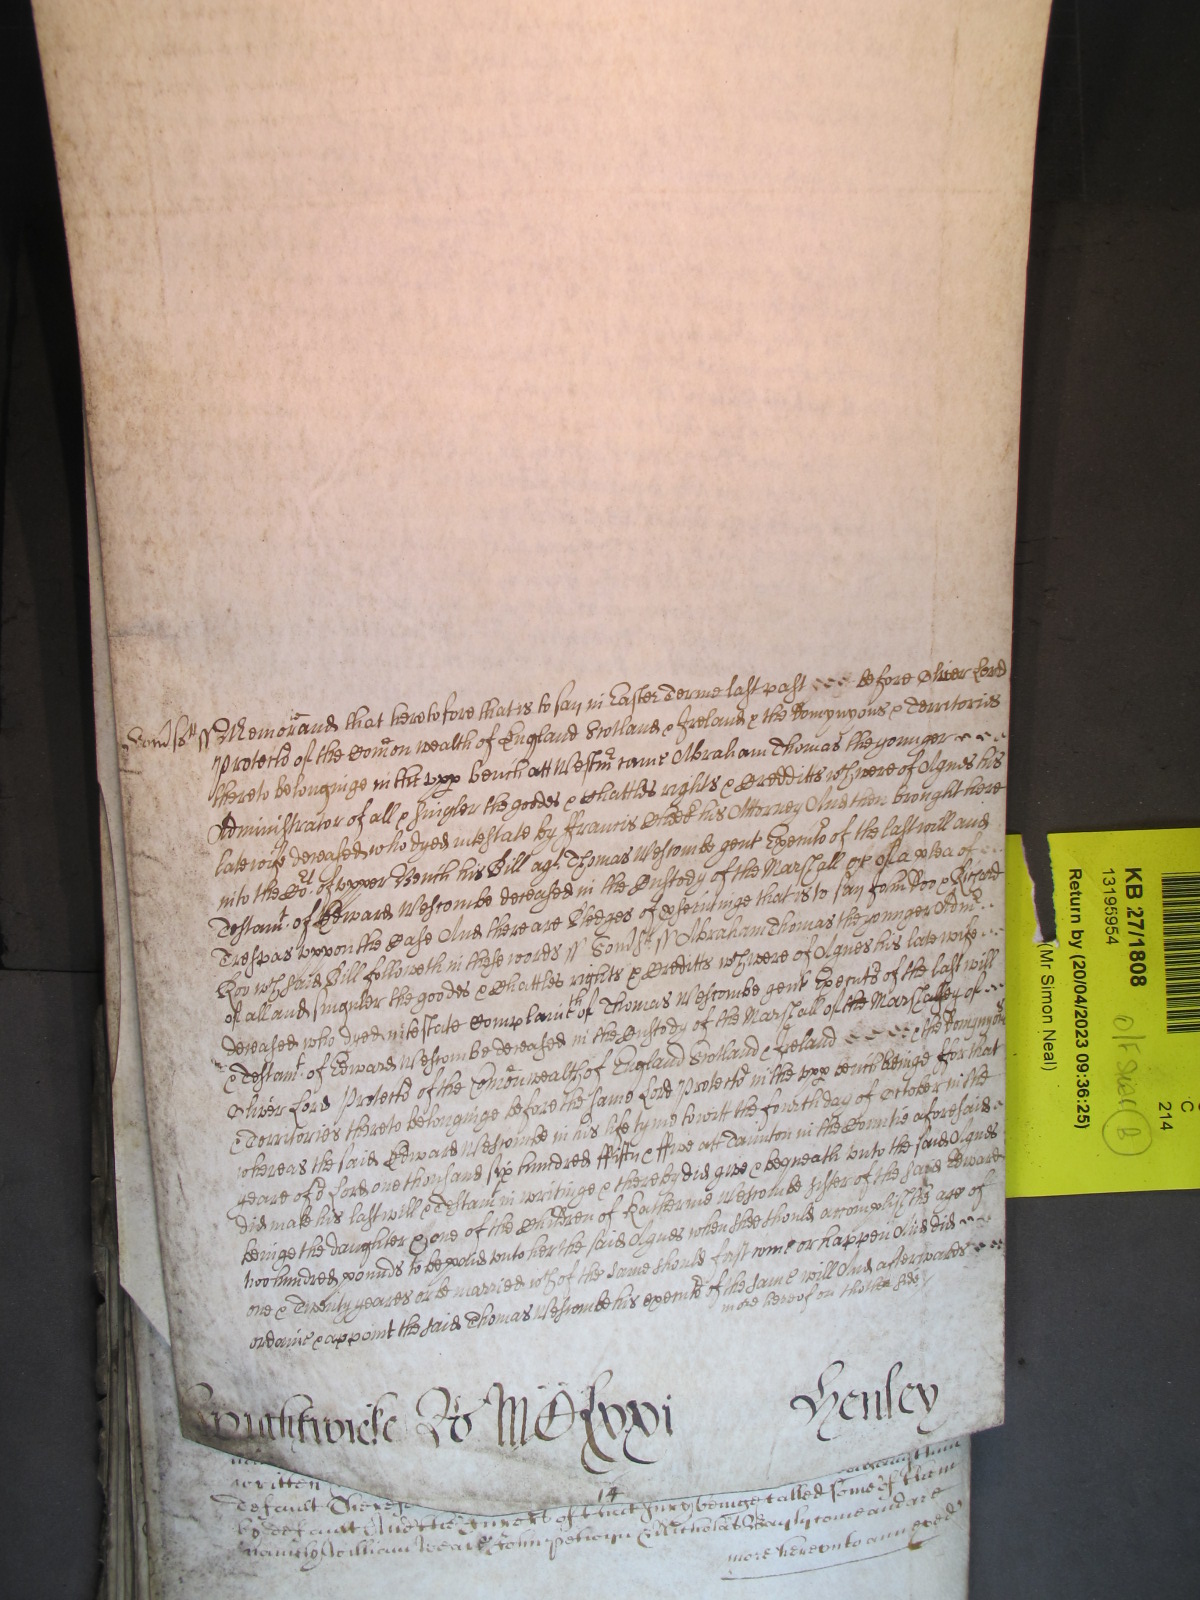 Somst ss Memorand that heretofore that is to say in Easter Terme last past before Oliver Lord
Protectr of the Comon wealth of England Scotland & Ireland & the Domynyons & Territories
thereto belonginge in the upp bench att Westmr came Abraham Thomas the younger
Administrator of all & singler the goodes & Chattles rights & Credditts wch were of Agnes his
late wife deceased who dyed intestate by Francis Cheek his Attorney And then brought here
into the Cot. of upper Bench his Bill agt. Thomas Westcombe gent Executor of the last will and
Testamt. of Edward Westcombe deceased in the Custody of the Marshall &c of a plea of
Trespas uppon the Case And there are Pledges of prsecutinge that is to say John Doo & Richard
Roo wch said Bill followeth in these words ss Somst ss Abraham Thomas the younger Admr.
of all and singuler the goodes & Chattles rights & Credditts wch were of Agnes his late wife
deceased who dyed intestate Complaineth of Thomas Westcombe gent Executr of the last will
& Testamt. of Edward Westcombe deceased in the Custody of the Marshall of the Marshalsey of
Oliver Lord Protectr of the Comonwealth of England Scotland & Ireland & the Domynyons
& Territories thereto belonginge before the same Lord Protectr in the upp bench beinge ffor that
whereas the said Edward Westcombe in his life tyme to witt the fourth day of October in the
yeare of or Lord one thousand six hundred ffifty & ffive att Taunton in the Countie aforesaid
did make his last will & Testamt in writinge & thereby did give & bequeath unto the said Agnes
beinge the daughter & one of the Children of Katherine Westcombe sister of the said Edward
two hundred pounds to be paid unto her the said Agnes when shee should accomplish the age of
one & Twenty yeares or be married wch of the same should first come or happen And did
ordaine & appoint the said Thomas Westcombe his executr of the same will And afterwards
more hereof on thother side
Ro MDlxxvi Henley
14
written
default Therefore
by default And the Jurors of that Jury beinge called some of them
namely William Weare John Nicholas Bayly come and are
more hereunto annexed
KB 27/1808
13195954
Return by (20/04/2023 09:36:25)
(Mr Simon Neal)
C
214
B